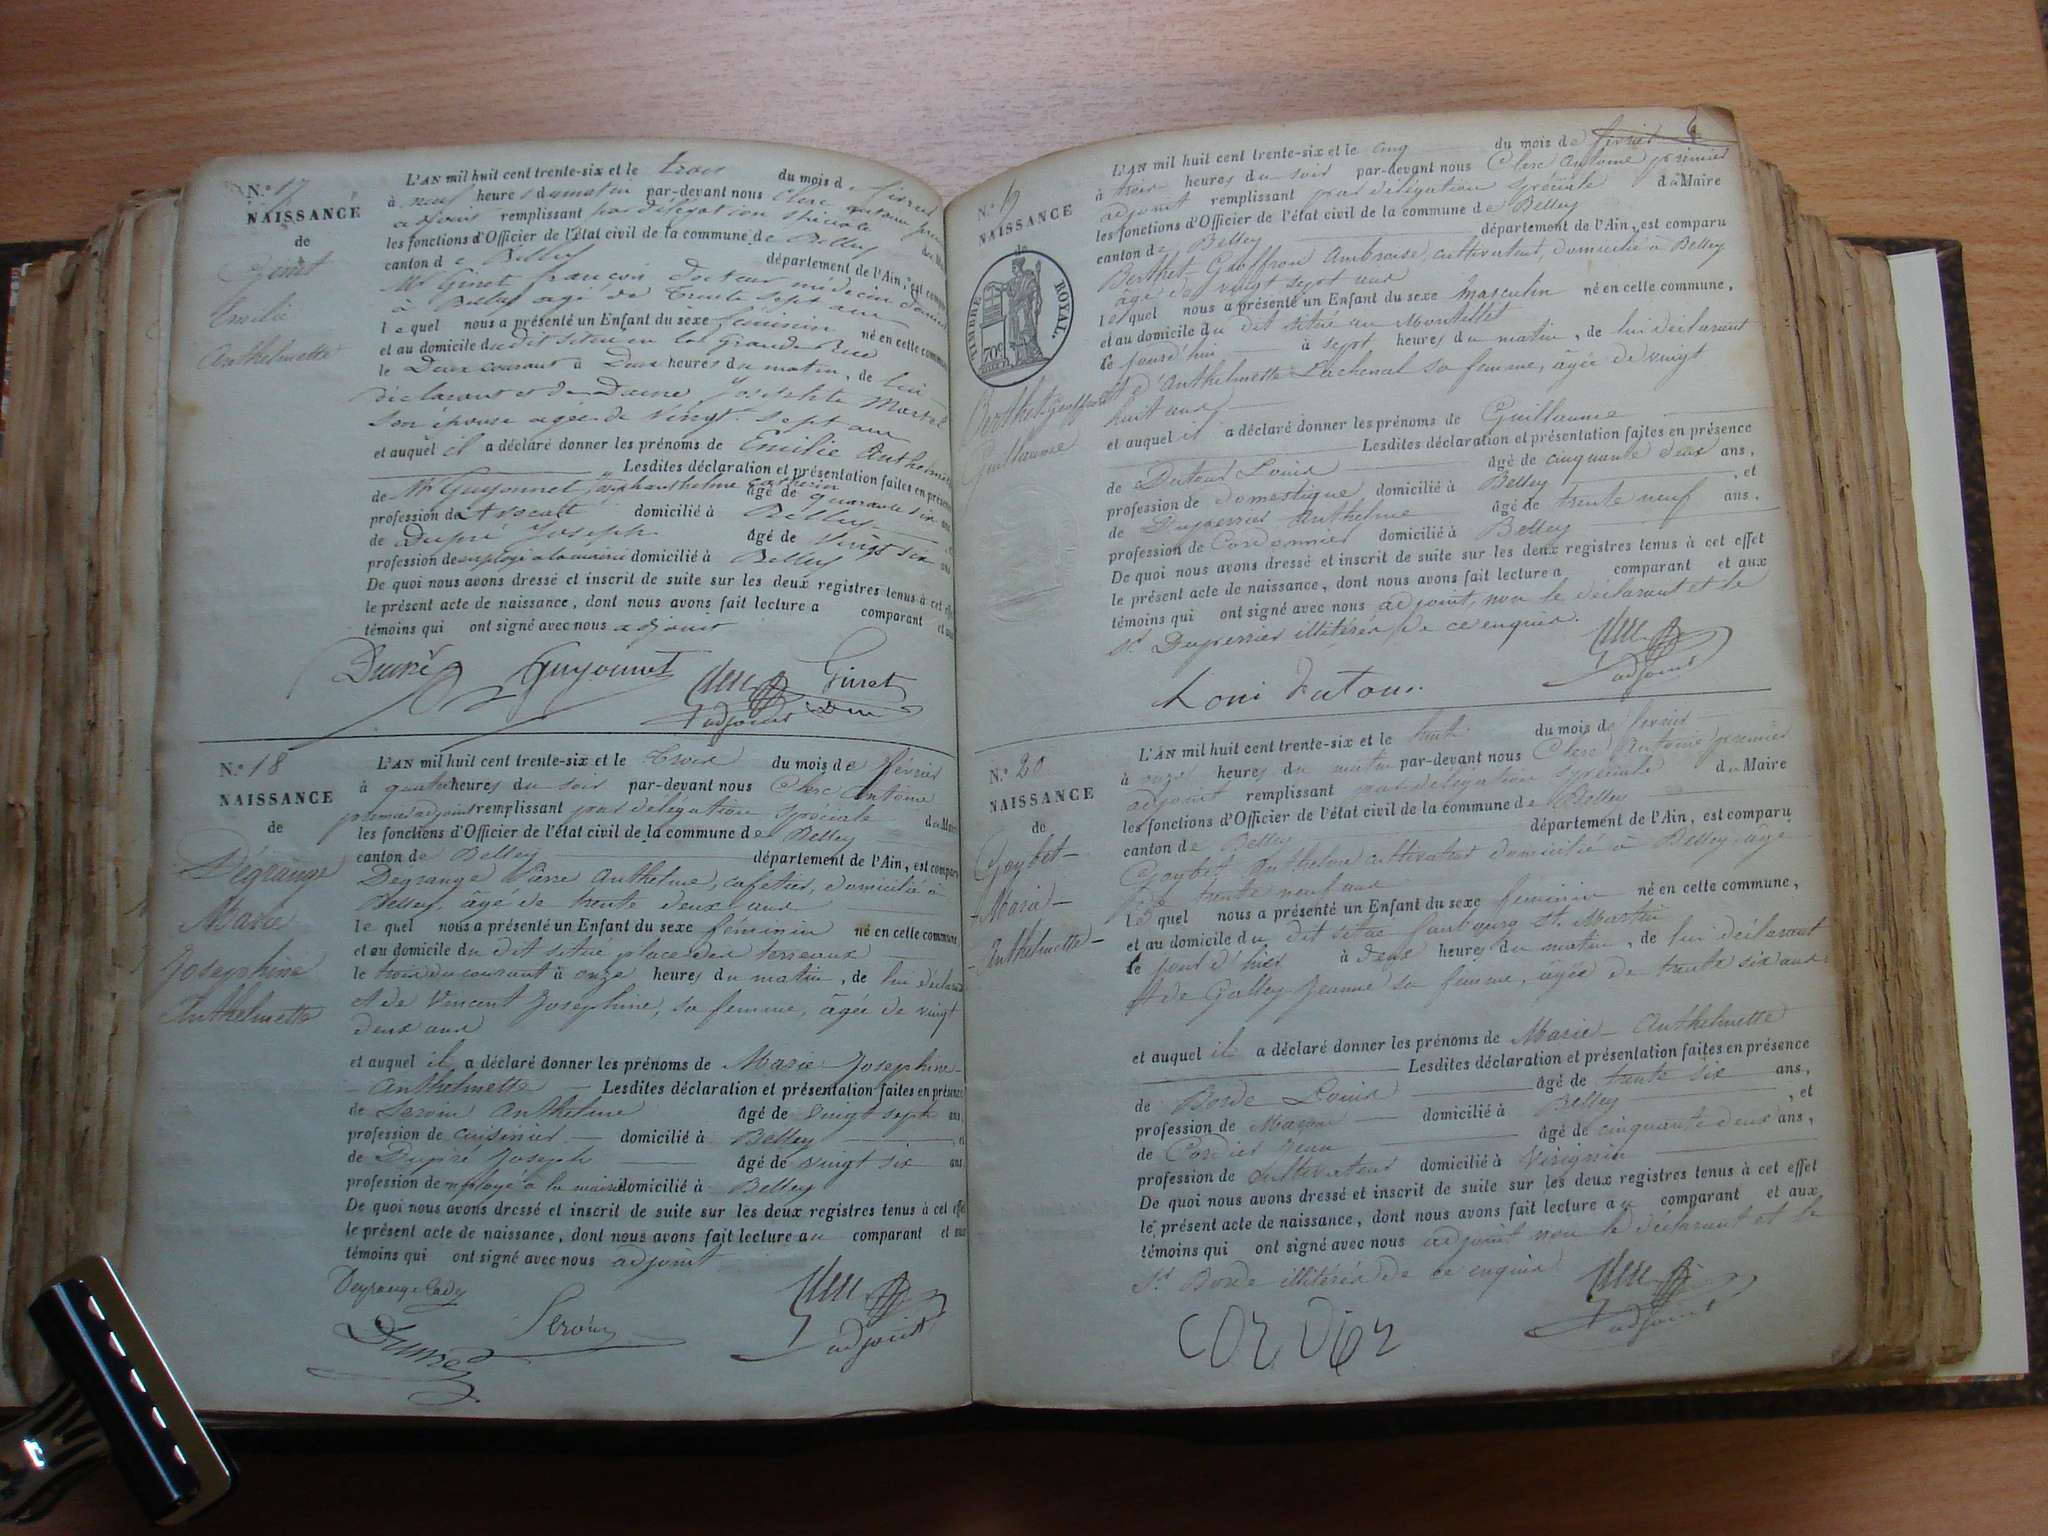 N.º 17
NAISSANCE
de
Ginet
Emilie
Anthelmette
L'AN mil huit cent trente-six et le trois du mois de février
à neuf heures du matin par-devant nous Clerc Antoine
adjoint remplissant par délégation spéciale du Maire
les fonctions d'Officier de l'état civil de la commune de Belley
canton de Belley département de l'Ain, est comparu
Mr Ginet françois Docteur médecin
à Belley agé de trente sept ans
lequel nous a présenté un Enfant du sexe féminin né en cette commune
et au domicile du dit situé en la grande Rue
le Deux courant à Deux heures du matin, de lui
déclarant et de Dame Josephte Martel
son épouse agée de vingt sept ans
et auquel il a déclaré donner les prénoms de Emilie Anthelmette
Lesdites déclaration et présentation faites en présence
de Mr Guyonnet Joseph anthelme âgé de quarante six ans
profession de Avocat domicilié à Belley
de Dupré Joseph âgé de vingt six ans
profession de employé a la mairie domicilié à Belley
De quoi nous avons dressé et inscrit de suite sur les deux registres tenus à cet effet
le présent acte de naissance, dont nous avons fait lecture a comparant et aux
témoins qui ont signé avec nous adjoint
Dupré Guyonnet Clerc Ginet
adjoint
N.º 18
NAISSANCE
de
Dégrange
Marie
Josephine
Anthelmette
L'AN mil huit cent trente-six et le trois du mois de février
à quatre heures du soir par-devant nous Clerc Antoine
premier adjoint remplissant par délégation spéciale du Maire
les fonctions d'Officier de l'état civil de la commune de Belley
canton de Belley département de l'Ain, est comparu
Degrange Pierre Anthelme, cafetier, domicilié à
Belley, âgé de trente deux ans
lequel nous a présenté un Enfant du sexe féminin né en cette commune,
et au domicile du dit situé place des terreaux
le trois du courant à onze heures du matin, de lui déclarant
et de Vincent Josephine, sa femme, âgée de vingt
deux ans
et auquel il a déclaré donner les prénoms de Marie Josephine
Anthelmette Lesdites déclaration et présentation faites en présence
de Servin Anthelme âgé de vingt sept ans
profession de cuisinier domicilié à Belley
de Dupré Joseph âgé de vingt six ans
profession de employé à la mairie domicilié à Belley
De quoi nous avons dressé et inscrit de suite sur les deux registres tenus à cet effet
le présent acte de naissance, dont nous avons fait lecture au comparant et aux
témoins qui ont signé avec nous adjoint
Clerc
adjoint
Dupré
6
N.º
NAISSANCE
de
TIMBRE ROYAL.
70c
Berthet-Geoffron
Guillaume
L'AN mil huit cent trente-six et le cinq du mois de février
à trois heures du soir par-devant nous Clerc Antoine premier
adjoint remplissant par délégation spéciale du Maire
les fonctions d'Officier de l'état civil de la commune de Belley
canton de Belley département de l'Ain, est comparu
Berthet-Geoffron Ambroise, cultivateur, domicilié à Belley
âgé de vingt sept ans
lequel nous a présenté un Enfant du sexe masculin né en cette commune,
et au domicile du dit situé au Montillet
le jourd'hui à sept heures du matin, de lui déclarant
et d'Anthelmette Lachenal sa femme, âgée de vingt
huit ans
et auquel il a déclaré donner les prénoms de Guillaume
Lesdites déclaration et présentation faites en présence
de Dutour Louis âgé de cinquante deux ans,
profession de domestique domicilié à Belley, et
de Duperrier Anthelme âgé de trente neuf ans.
profession de Cordonnier domicilié à Belley
De quoi nous avons dressé et inscrit de suite sur les deux registres tenus à cet effet
le présent acte de naissance, dont nous avons fait lecture a comparant et aux
témoins qui ont signé avec nous adjoint, non le déclarant et le
Sr Duperrier illitérés de ce enquis.
Clerc
adjoint
N.º 20
NAISSANCE
de
Goybet
Marie
Anthelmette
L'AN mil huit cent trente-six et le huit du mois de février
à onze heures du matin par-devant nous Clerc Antoine premier
adjoint remplissant par délégation spéciale du Maire
les fonctions d'Officier de l'état civil de la commune de Belley
canton de Belley département de l'Ain, est comparu
Goybet Anthelme cultivateur domicilié à Belley, agé
de trente neuf ans
lequel nous a présenté un Enfant du sexe féminin né en cette commune,
et au domicile du dit situé faubourg St. Martin
le jour d'hier à deux heures du matin, de lui déclarant
et de Galley Jeanne sa femme, âgée de trente six ans
et auquel il a déclaré donner les prénoms de Marie Anthelmette
Lesdites déclaration et présentation faites en présence
de Borde Louis âgé de trente six ans,
profession de Maçon domicilié à Belley, et
de Cordier Jean âgé de cinquante deux ans,
profession de cultivateur domicilié à Virignin
De quoi nous avons dressé et inscrit de suite sur les deux registres tenus à cet effet
le présent acte de naissance, dont nous avons fait lecture au comparant et aux
témoins qui ont signé avec nous adjoint non le déclarant et le
Sr Borde illitérés de ce enquis
Clerc
adjoint